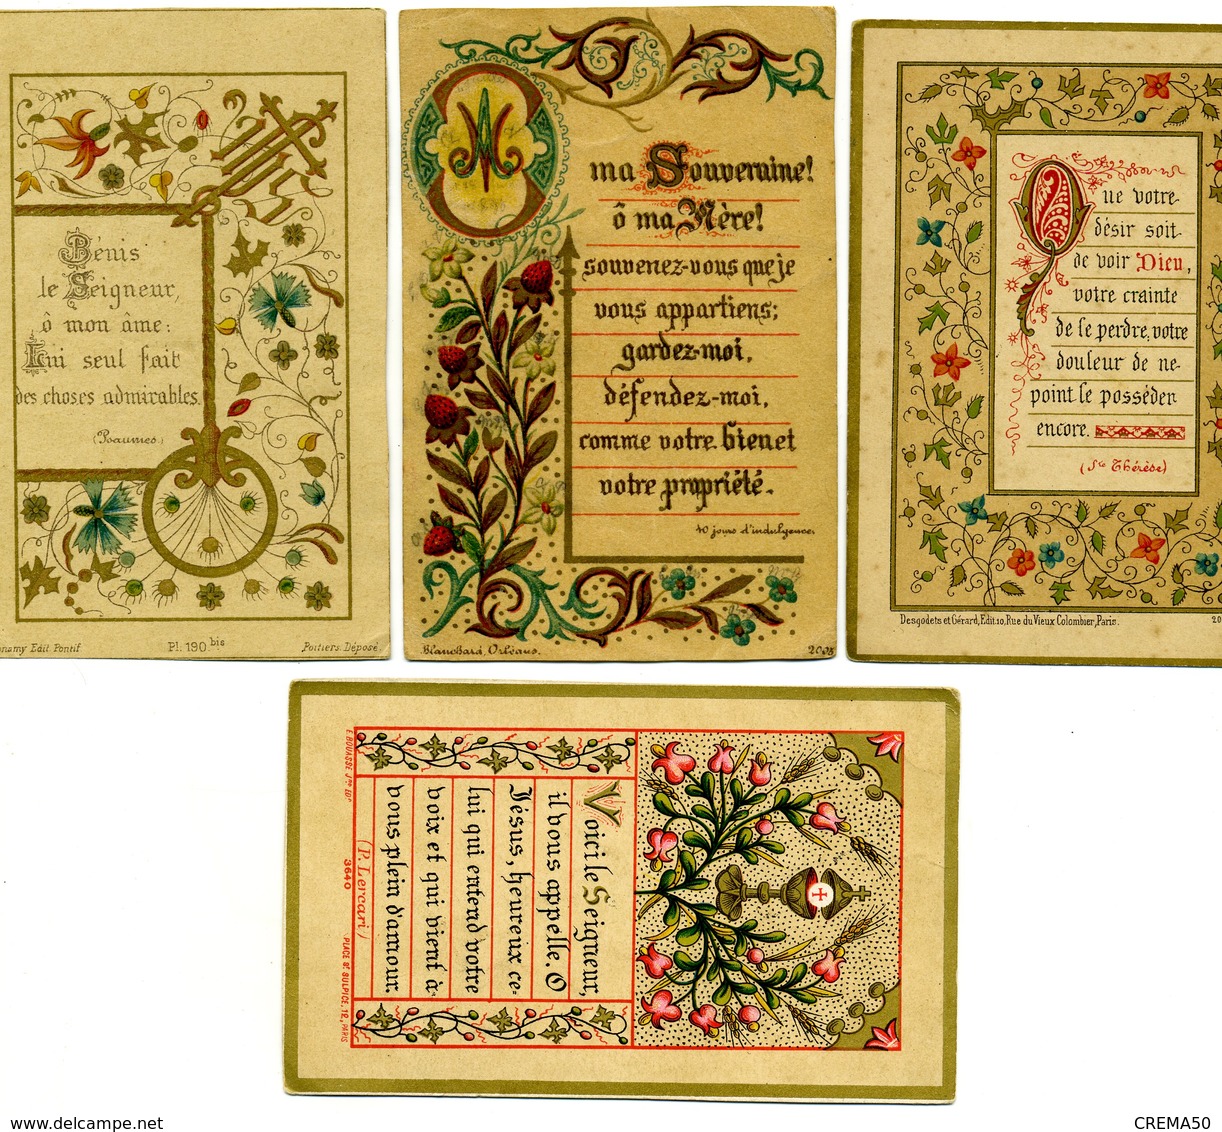 Bénis
le Seigneur,
ô mon âme:
Lui seul fait
des choses admirables.
(Psaumes)
Edit Pontif
Pl. 190 bis
Poitiers. Déposé
ma Souveraine!
ô ma Mère!
souvenez-vous que je
vous appartiens;
gardez-moi,
défendez-moi,
comme votre bien et
votre propriété.
40 jours d'indulgence.
Blanchard, Orléans.
2005
Que votre
désir soit
de voir Dieu,
votre crainte
de le perdre, votre
douleur de ne
point le posséder
encore.
(Ste Thérèse)
Desgodets et Gérard, Edit. 10, Rue du Vieux Colombier, Paris.
20
Voici le Seigneur,
il vous appelle. O
Jésus, heureux ce-
lui qui entend votre
voix et qui vient à
vous plein d'amour.
(P. Lercari)
E. BOUASSE Jne EDr
3640
PLACE St SULPICE, 12, PARIS
www.delcampe.net
CREMA50